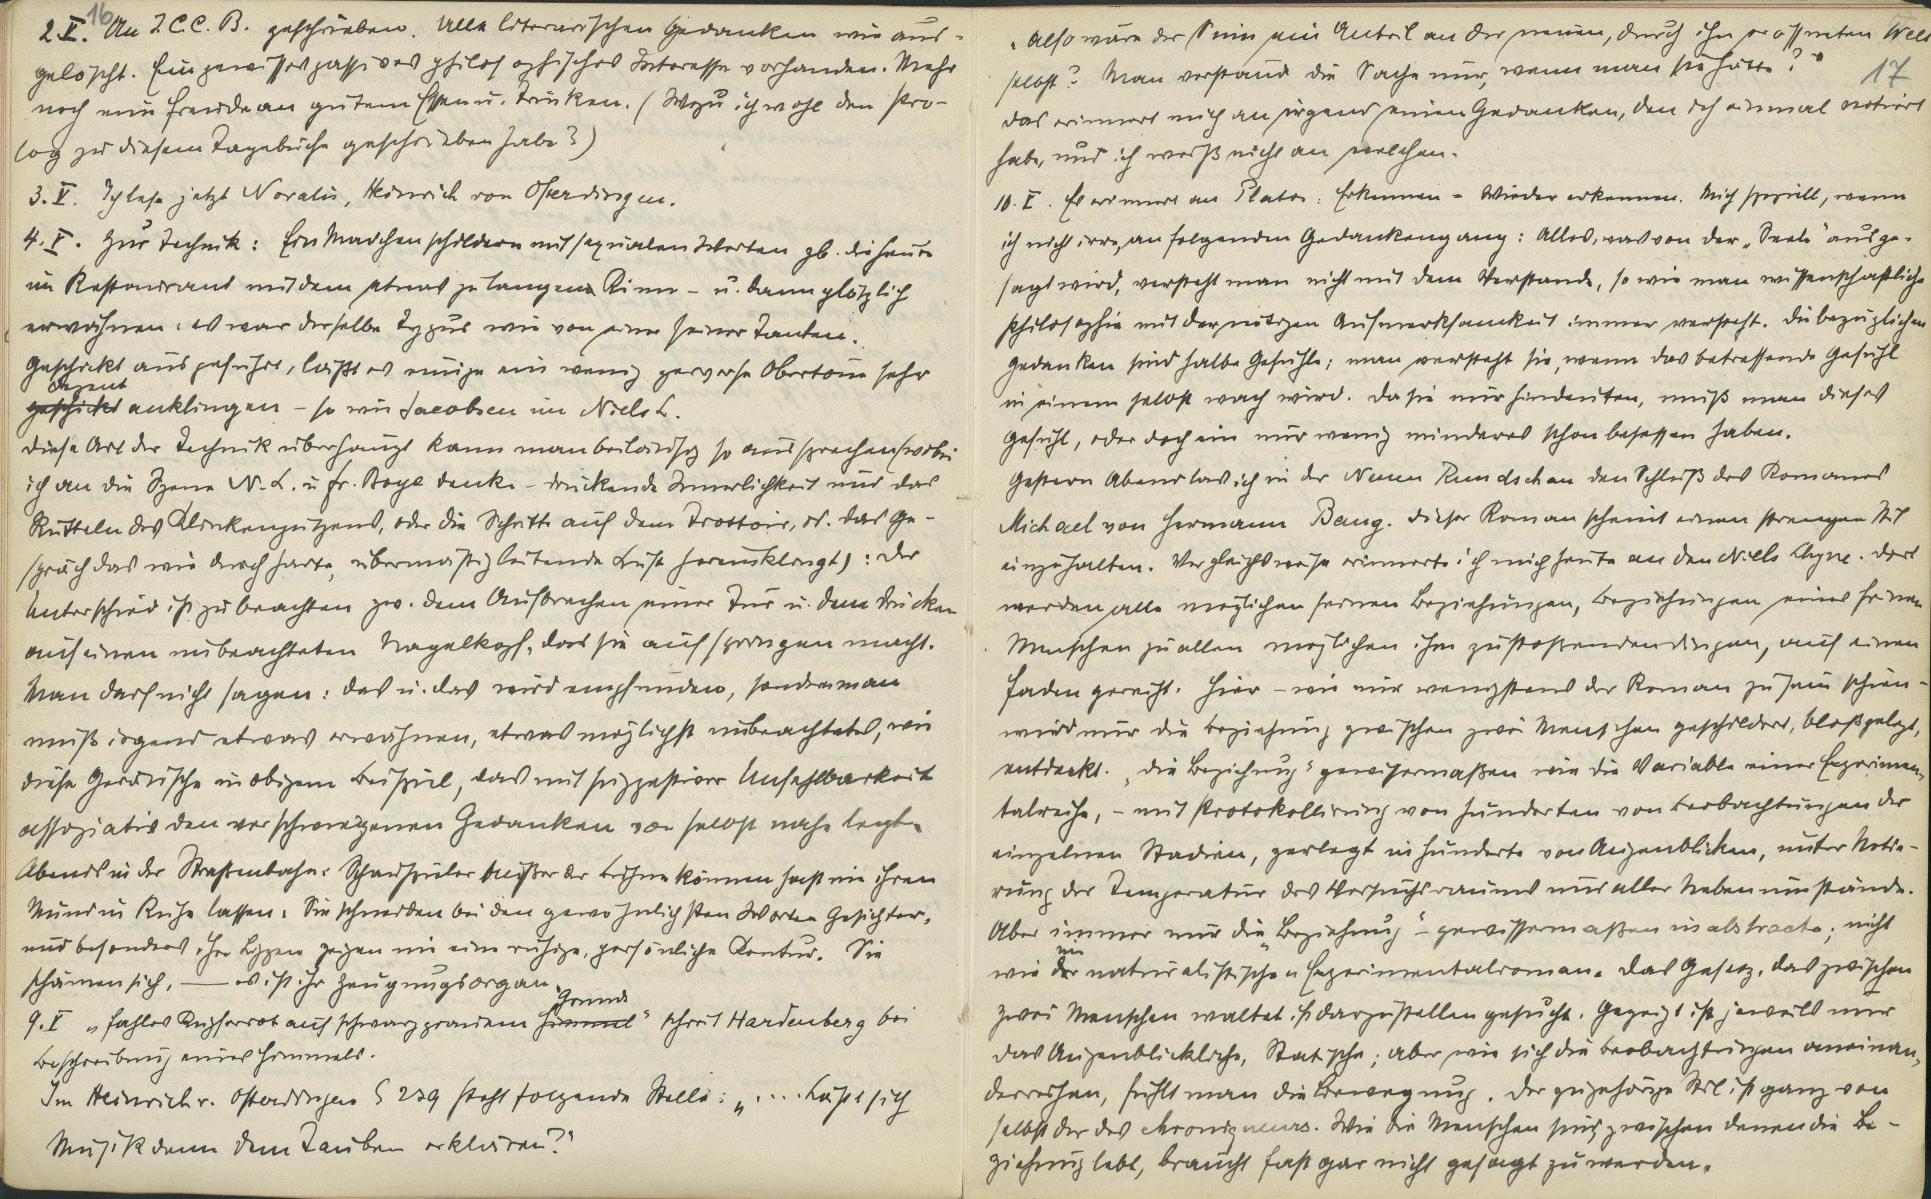 16
2.V. An I.C.C.B. geschrieben. Alle literarischen Gedanken wie aus-
gelöscht. Ein gewisses passives philosophisches Interesse vorhanden. Mehr
noch eine Freude an gutem Essen u. Trinken. (Wozu ich wohl den Pro-
log zu diesem Tagebuche geschrieben habe?)
3.V. Ich lese jetzt Novalis, Heinrich von Ofterdingen.
4.V. Zur Technik: Ein Mädchen schildern mit sexualen Worten zb. die heute
im Restaurant mit dem etwas zu langen Kinn – u. dann plötzlich
erwähnen: es war derselbe Typus wie von einer seiner Tanten.
Geschickt ausgeführt, läßt es einige ein wenig perverse Obertöne sehr
dezent
geschickt anklingen – so wie Jacobsen im Niels L.
Diese Art der Technik überhaupt kann man beiläufig so aussprechen (wobei
ich an die Szene N. L. u Fr. Boye denke – drückende Innerlichkeit und das
Rütteln des Klinkenputzens, oder die Schritte auf dem Trottoir, od. das Ge-
spräch das wie durch harte, übermäßig leitende Luft hereinklingt): Der
Unterschied ist zu beachten zw. dem Aufbrechen einer Tür u. dem Drücken
auf einen unbeachteten Nagelkopf, das sie aufspringen macht.
Man darf nicht sagen: das u. das wird empfunden, sondern man
muß irgend etwas erwähnen, etwas möglichst unbeachtetes, wie
diese Geräusche in obigem Beispiel, das mit suggestiver Unfehlbarkeit
assoziativ den verschwiegenen Gedanken von selbst nahe legt.
Abends in der Straßenbahn: Schauspieler außer der Bühne können fast nie ihren
Mund in Ruhe lassen. Sie schneiden bei den gewöhnlichsten Worten Gesichter,
und besonders ihre Lippen zeigen nie eine ruhige, persönliche Kontur. Sie
schämen sich, — es ist ihr Zeugungsorgan.
Grunde
9.V „fahles Kupferrot auf schwarzgrauem Himmel“ schreit Hardenberg bei
Beschreibung eines Himmels.
Im Heinrich v. Ofterdingen S 239 steht folgende Stelle: „.... Läßt sich
Musik denn dem Tauben erklären?“
17
„Also wäre der Sinn ein Anteil an der neuen, durch ihn eröffneten Welt
selbst? Man verstand die Sache nur, wenn man sie hätte?“
das erinnert mich an irgend einen Gedanken, den ich einmal notiert
habe, und ich weiß nicht an welchen.
10.V. Es erinnert an Plato: Erkennen = Wieder erkennen. Mich speziell, wenn
ich nicht irre, an folgenden Gedankengang: Alles, was von der „Seele“ ausge-
sagt wird, versteht man nicht mit dem Verstande, so wie man wissenschaftliche
Philosophie mit der nötigen Aufmerksamkeit immer versteht. Die bezüglichen
Gedanken sind halbe Gefühle; man versteht sie, wenn das betreffende Gefühl
in einem selbst wach wird. Da sie nur hindeuten, muß man dieses
Gefühl, oder doch ein nur wenig minderes schon besessen haben.
Gestern Abend las ich in der Neuen Rundschau den Schluß des Romanes
Michael von Hermann Bang. Dieser Roman scheint einen strengen Stil
einzuhalten. Vergleichsweise erinnerte ich mich heute an den Niels Lhyne. Dort
werden alle möglichen feinen Beziehungen, Beziehungen eines feinen
Menschen zu allen möglichen ihm zustoßenden Dingen, auf einen
Faden gereiht. Hier – wie mir wenigstens der Roman zu sein schien –
wird nur die Beziehung zwischen zwei Menschen geschildert, bloßgelegt,
entdeckt. „Die Beziehung“ gewissermaßen wie die Variable einer Experimen-
talreihe, – mit Protokollirung von hunderten von Beobachtungen der
einzelnen Stadien, zerlegt in hunderte von Augenblicken, unter Notie-
rung der Temperatur des Versuchsraums und aller Nebenumstände.
Aber immer nur die „Beziehung“ – gewissermaßen in abstracto; nicht
im
wie der naturalistischen Experimentalroman. Das Gesetz, das zwischen
zwei Menschen waltet ist darzustellen gesucht. Gezeigt ist jeweils nur
das Augenblickliche, Statische; aber wie sich die Beobachtungen aneinan-
derreihen, fühlt man die Bewegung. Der zugehörige Stil ist ganz von
selbst der des chroniqueurs. Wie die Menschen sind, zwischen denen die Be-
ziehung lebt, braucht fast gar nicht gesagt zu werden.